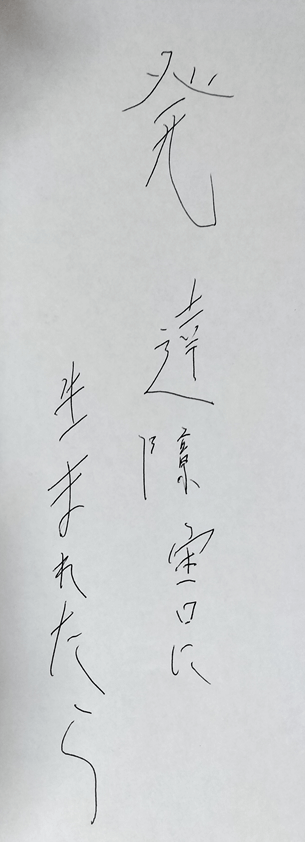 発達障害に
生まれたら